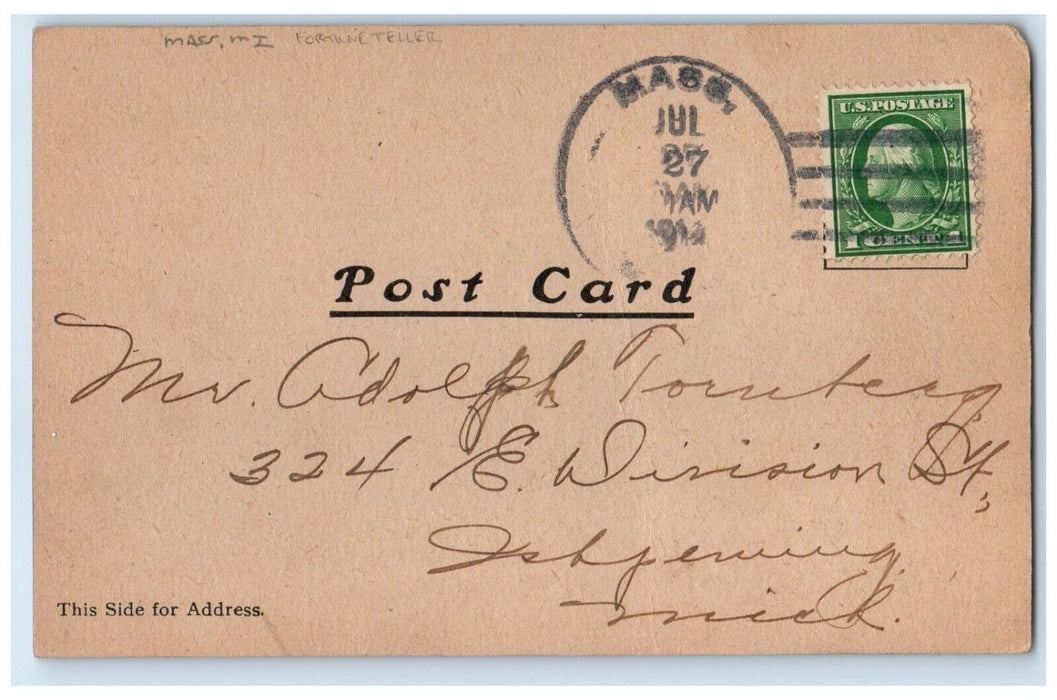 MASS, MI FORTUNE TELLER
MASS.
JUL
27
AM
U.S. POSTAGE
1 CENT 1
Post Card
Mr. Adolph Tornberg
324 E. Division St,
Ishpeming
Mich.
This Side for Address.